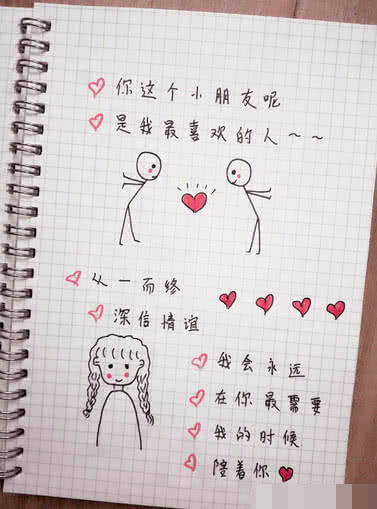 你这个小朋友呢
是我最喜欢的人～～
从一而终
深信情谊
我会永远
在你最需要
我的时候
陪着你